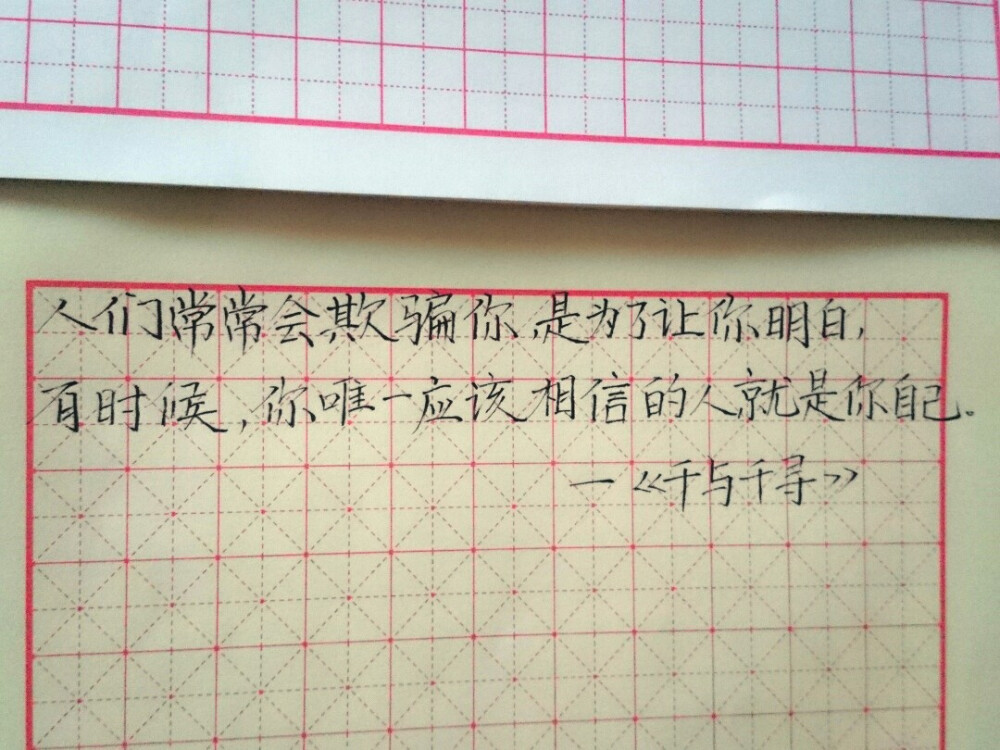 人们常常会欺骗你,是为了让你明白,
有时候,你唯一应该相信的人就是你自己。
—《千与千寻》